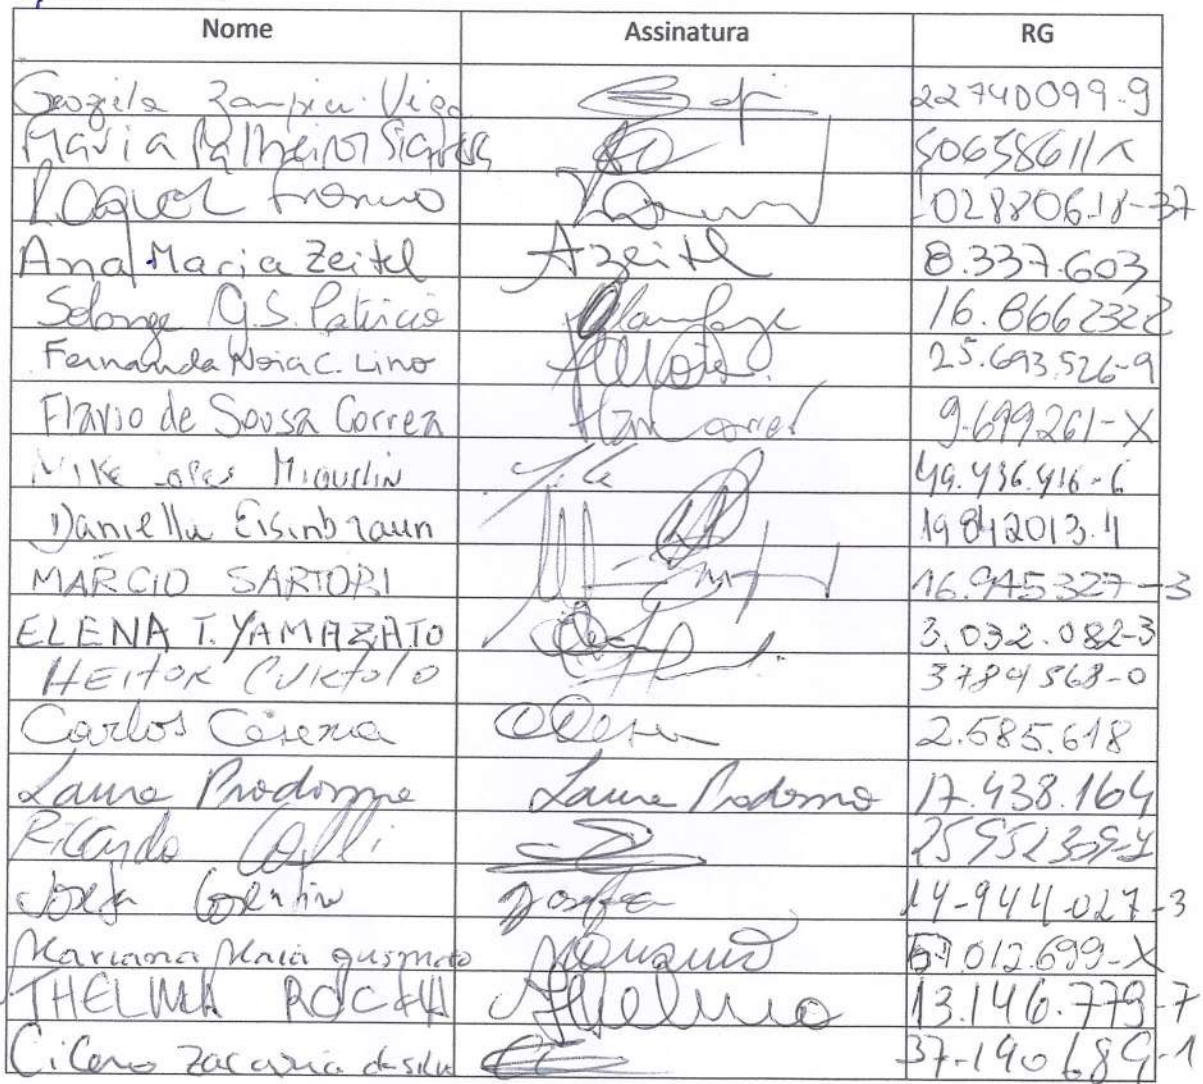 Nome Assinatura RG
Viga 22740099-9
Maria Palheiro
Raquel Franco 02880618-37
Ana Maria Zeitel Azeitel 8.337.603
Solange G.S. Patricio 16.8662322
Fernanda Noia C. Lino 25.693.526-9
Flavio de Sousa Correa 9.699261-X
Mike Lopes Miquelin Mike 49.436.416-6
Daniella Eisinbraun 19842013.4
MARCIO SARTORI 16.945327-3
ELENA T. YAMAZATO 3.032.082-3
HEITOR CURTOLO 3784568-0
Carlos 2.585.618
Laura Prodomo Laura Prodomo 17.438.164
Ricardo
Josefa Josefa 14-944.027-3
Mariana Maia Gusmao 012.699-X
THELMA ROCHA Thelma 13.146.779-7
Cicero Zacaria da silva 37-190689-1